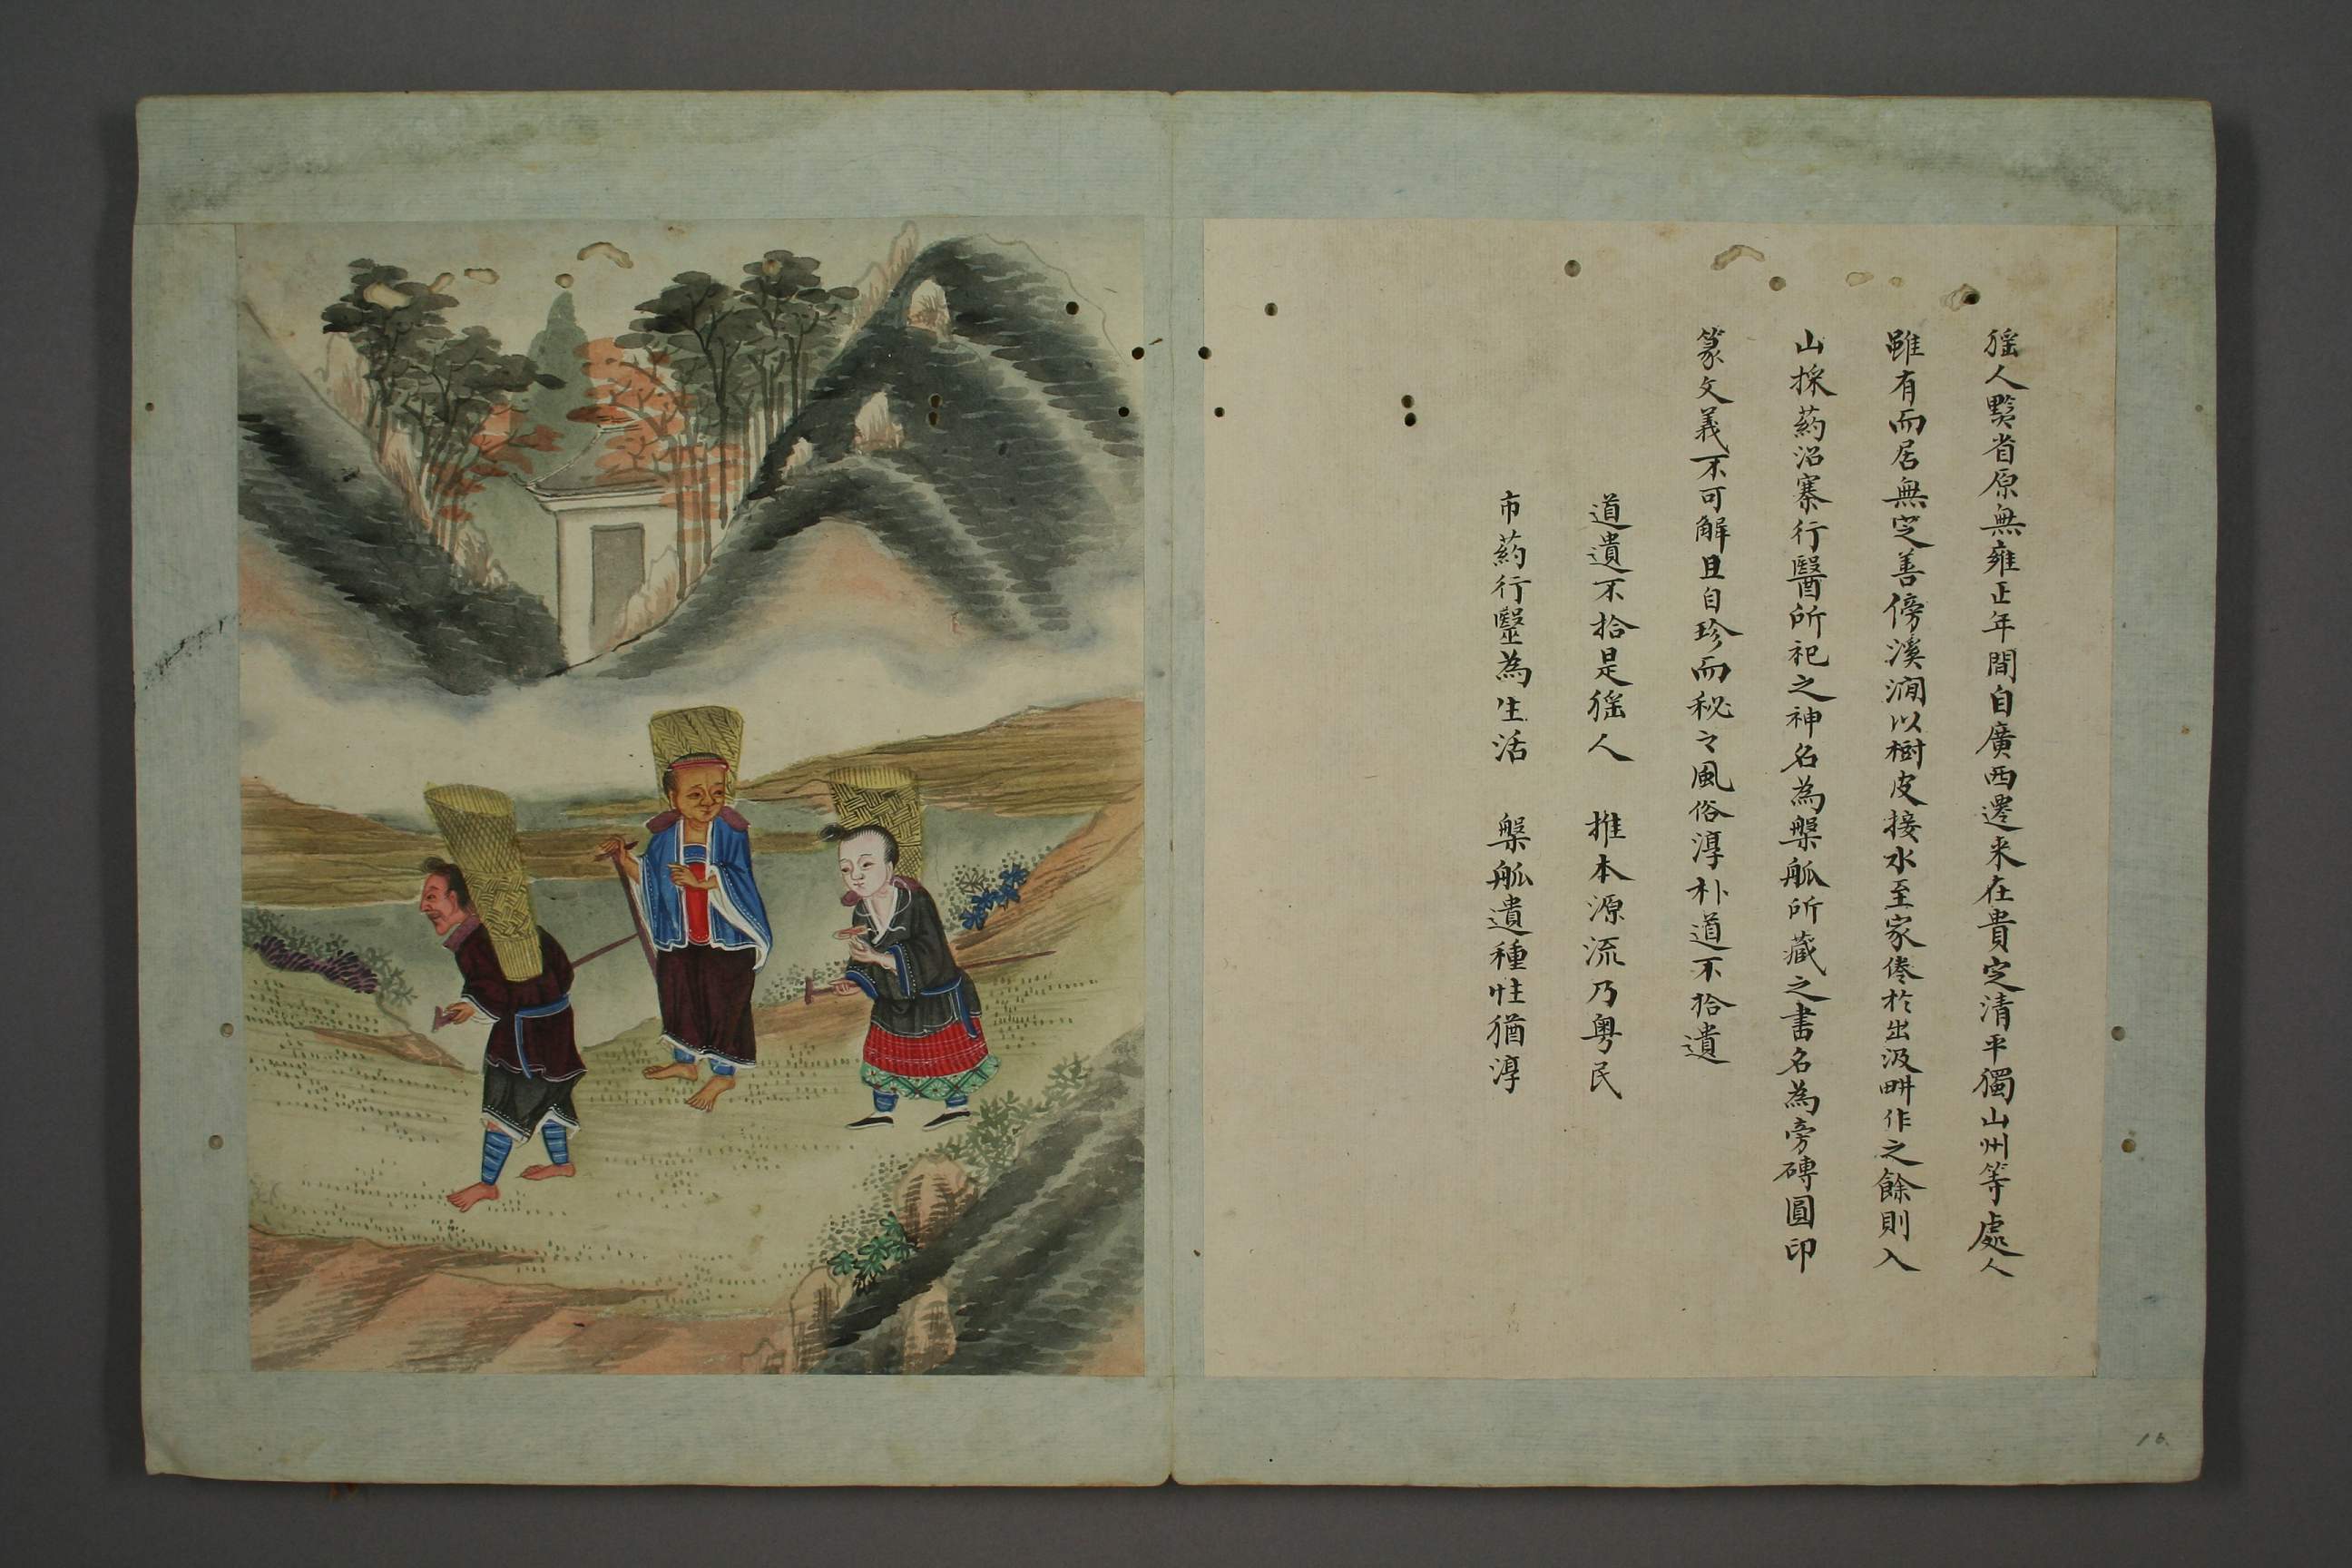 猺人黔省原無雍正年間自廣西遷来在貴定清平獨山州等處人
雖有而居無定善傍溪澗以樹皮接水至家倦於出汲畊作之餘則入
山採葯沿寨行醫所祀之神名為槃瓠所藏之書名為旁磚圓印
篆文義不可解且自珍而秘之風俗淳朴道不拾遺
道遺不拾是猺人 推本源流乃粤民
市葯行毉為生活 槃瓠遺種性猶淳
16